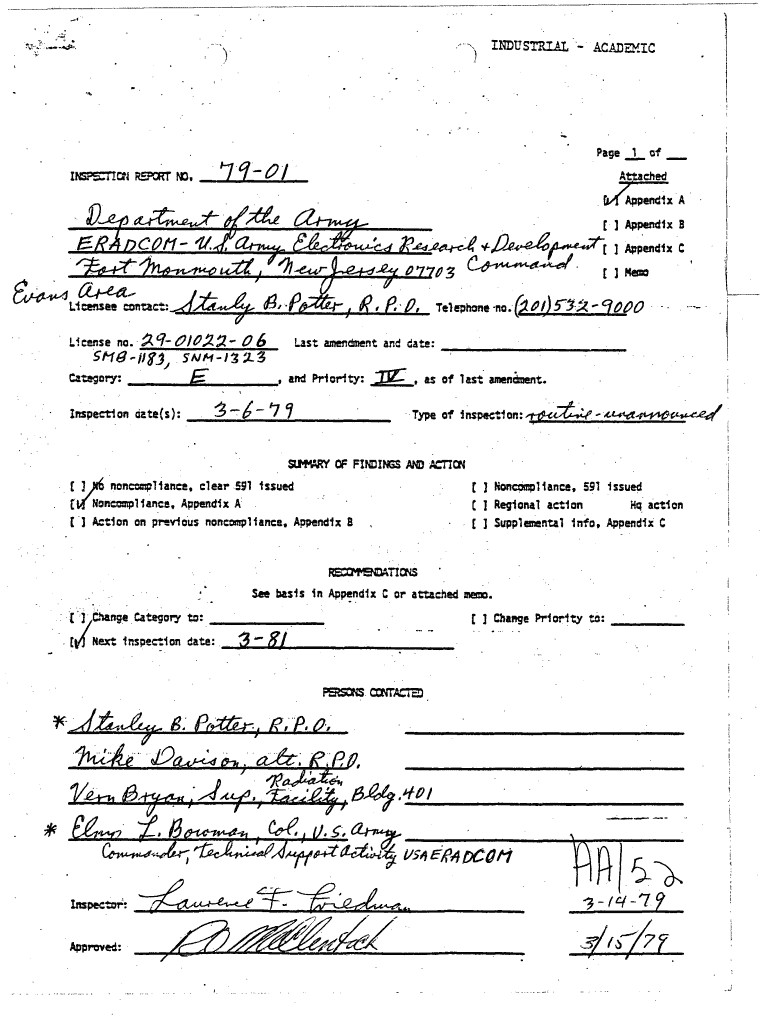 INDUSTRIAL - ACADEMIC
Page 1 of __
INSPECTION REPORT NO. 79-01
Attached
[✓] Appendix A
Department of the Army
[ ] Appendix B
ERADCOM - U.S. Army Electronics Research + Development
[ ] Appendix C
Fort Monmouth, New Jersey 07703 Command
[ ] Memo
Evans Area
Licensee contact: Stanly B. Potter, R.P.O. Telephone no. (201) 532-9000
License no. 29-01022-06 Last amendment and date:
SMB-1183, SNM-1323
Category: E, and Priority: IV, as of last amendment.
Inspection date(s): 3-6-79 Type of inspection: routine-unannounced
SUMMARY OF FINDINGS AND ACTION
[ ] No noncompliance, clear 591 issued [ ] Noncompliance, 591 issued
[✓] Noncompliance, Appendix A [ ] Regional action Hq action
[ ] Action on previous noncompliance, Appendix B [ ] Supplemental info, Appendix C
RECOMMENDATIONS
See basis in Appendix C or attached memo.
[ ] Change Category to: [ ] Change Priority to:
[✓] Next inspection date: 3-81
PERSONS CONTACTED
* Stanley B. Potter, R.P.O.
Mike Davison, alt. R.P.O.
Vern Bryan, Sup., Radiation Facility, Bldg. 401
* L. Bowman, Col., U.S. Army
Commander, Technical Support Activity USAERADCOM
AA/52
Inspector: Laurence F. Friedman 3-14-79
Approved: 3/15/79